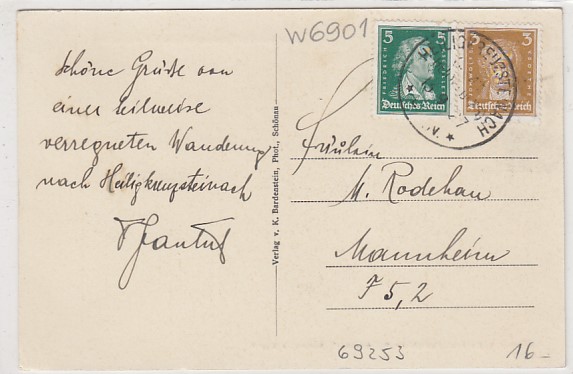 W6901
Schöne Grüße von
einer teilweise
verregneten Wanderung
nach Heiligkreuzsteinach
Verlag v. K. Bardenstein, Phot., Schönau
5 5
FRIEDRICH SCHILLER
Deutsches Reich
3 3
Deutsches Reich
HEILIGKREUZSTEINACH
Fräulein
M. Rodehau
Mannheim
F 5, 2
69253
16-